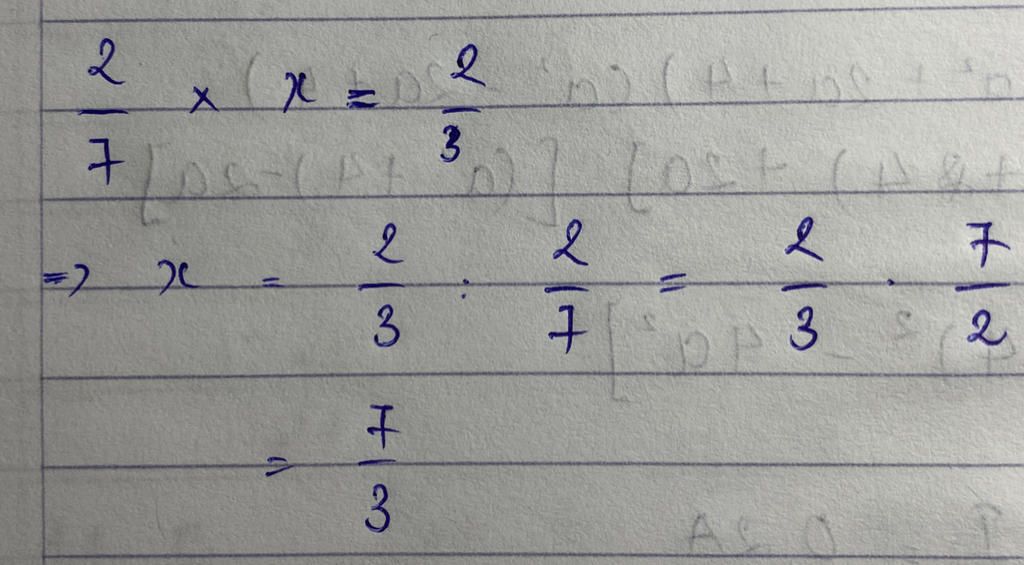 2/7 × x = 2/3
=> x = 2/3 : 2/7 = 2/3 . 7/2
= 7/3